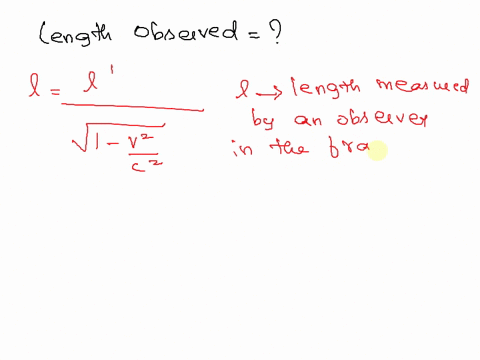 Length observed = ?
l = l' / √(1 - v²/c²)
l → length measured
by an observer
in the fra